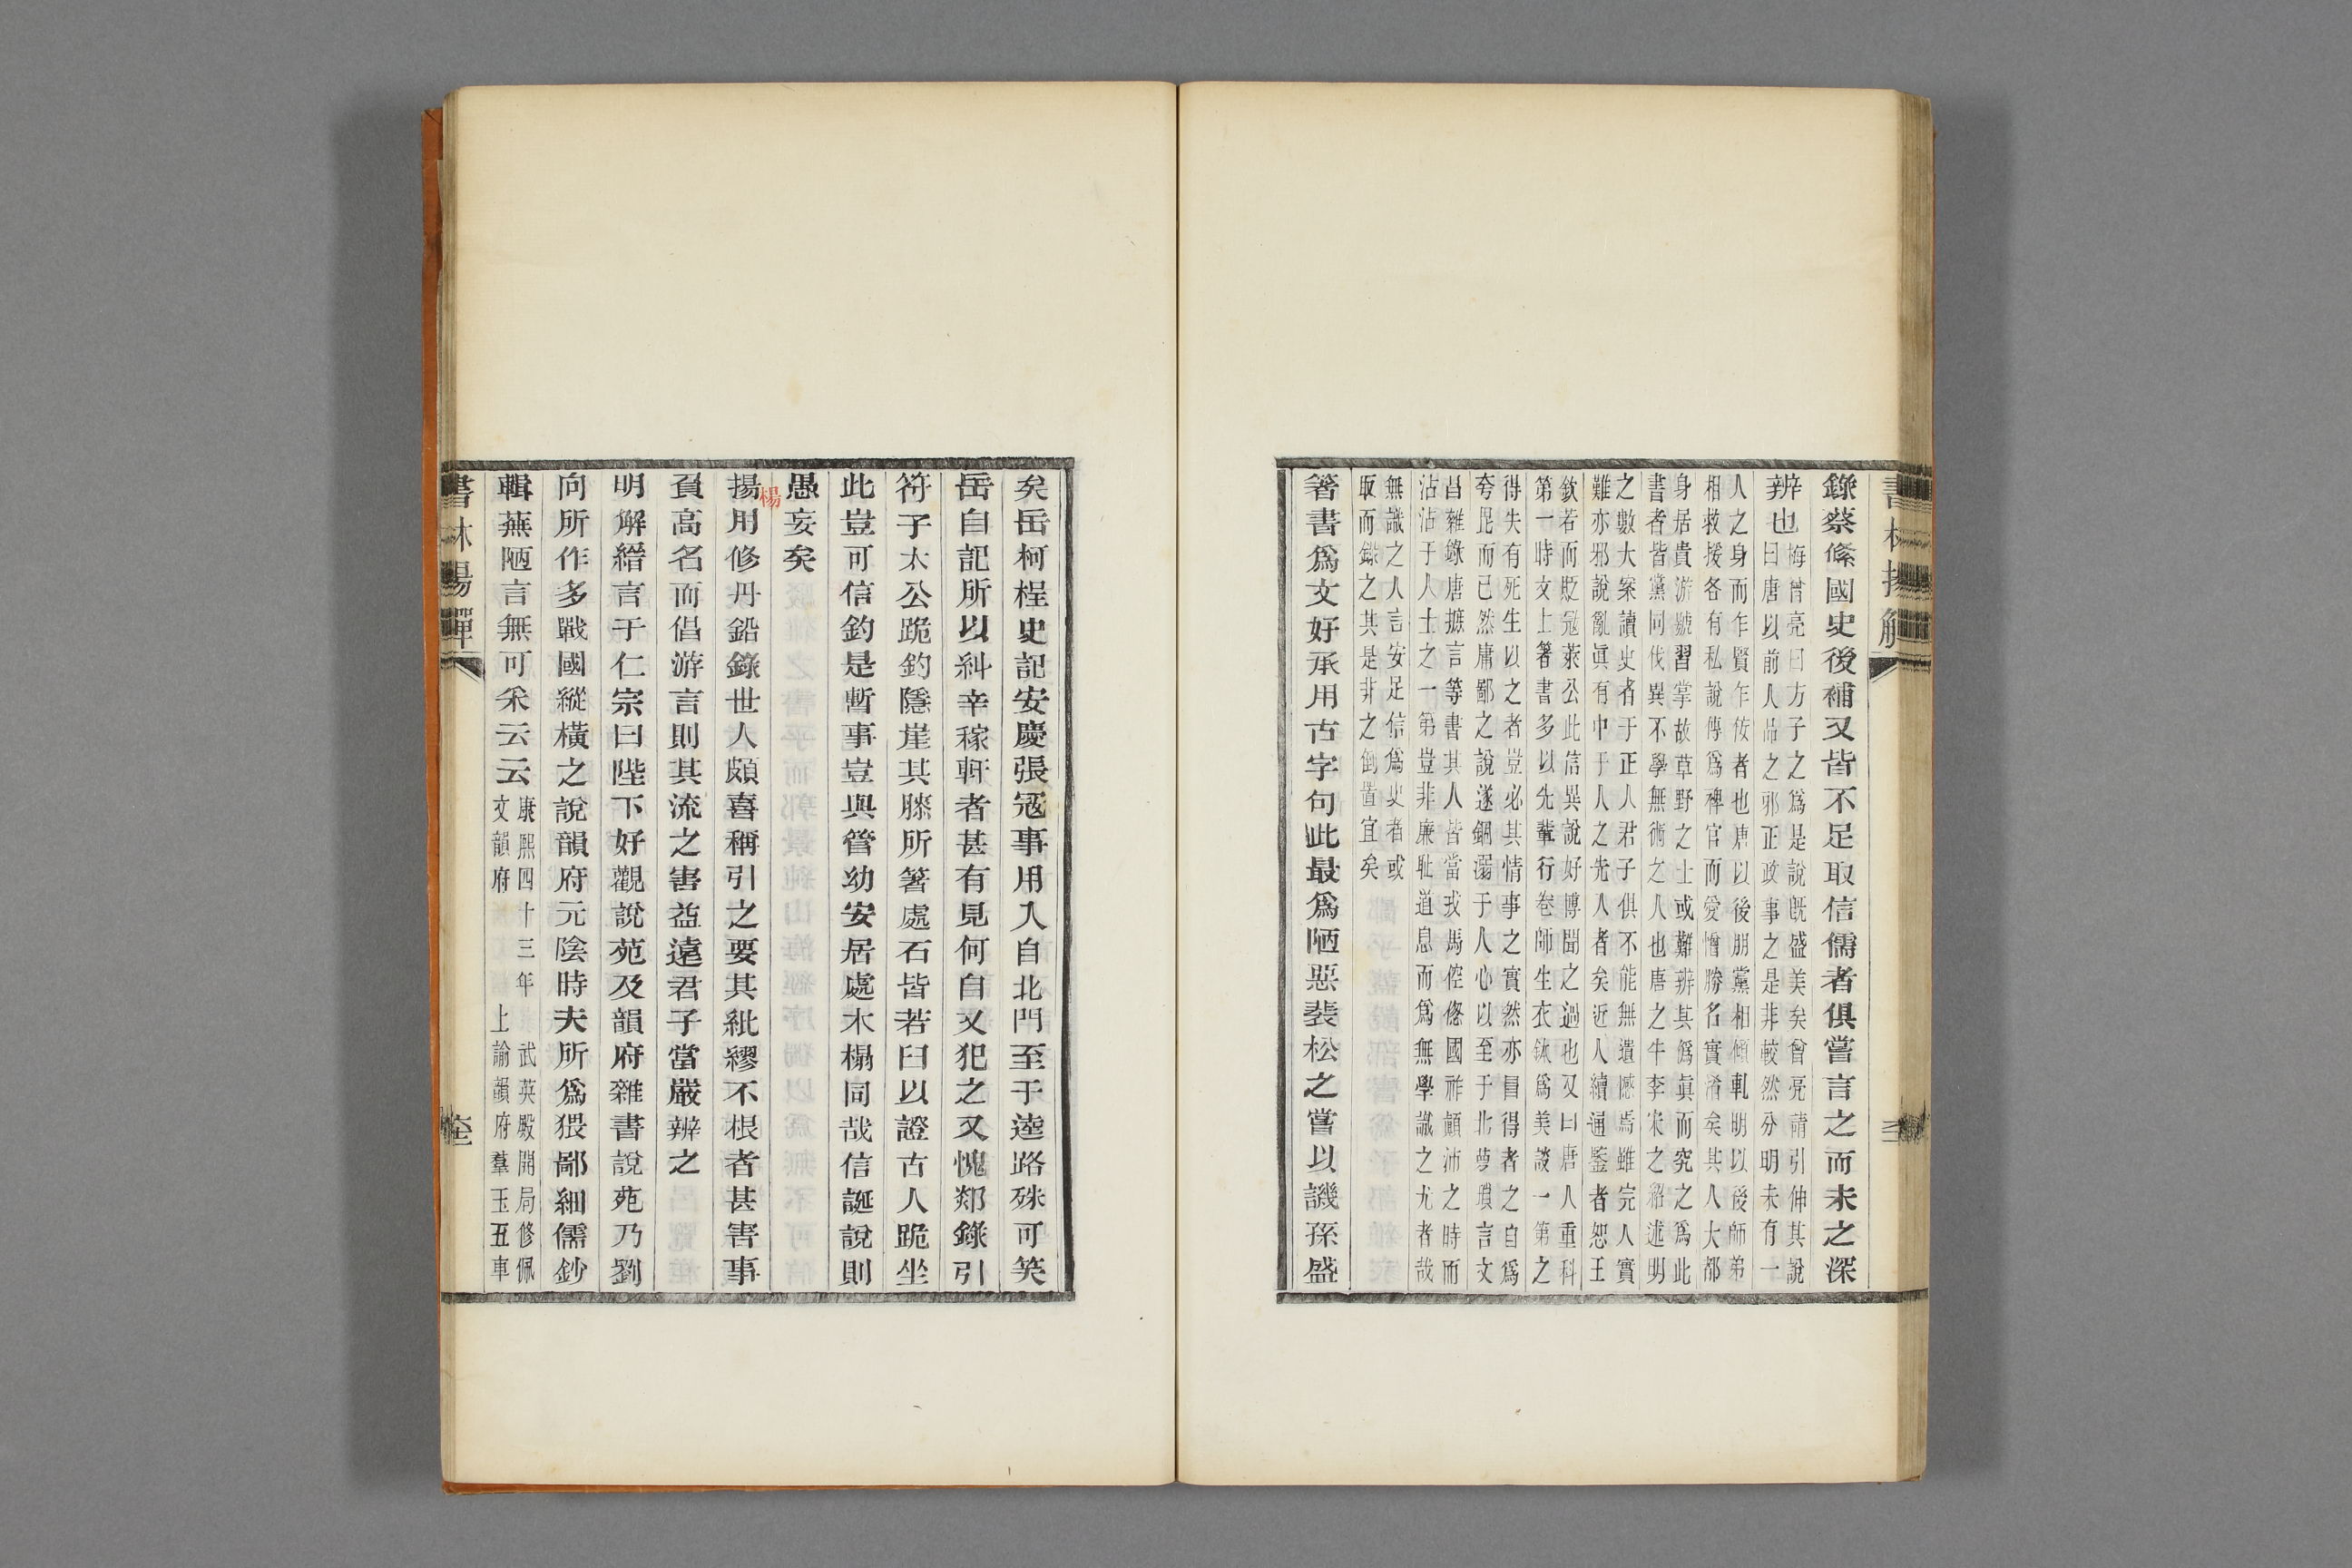 錄蔡絛國史後補又皆不足取信儒者俱嘗言之而未之深
辨也
梅曾亮曰方子之爲是說旣盛美矣曾亮請引伸其說
曰唐以前人品之邪正政事之是非較然分明未有一
人之身而乍賢乍佞者也唐以後朋黨相傾軋明以後師弟
相救援各有私說傳爲稗官而愛憎勝名實淆矣其人大都
身居貴游號習掌故草野之士或難辨其僞眞而究之爲此
書者皆黨同伐異不學無術之人也唐之牛李宋之紹述明
之數大案讀史者于正人君子俱不能無遺憾焉雖完人實
難亦邪說亂眞有中于人之先入者矣近人續通鑒者恕王
欽若而貶冦萊公此信異說好博聞之過也又曰唐人重科
第一時文上箸書多以先輩行卷師生衣鉢爲美談一第之
得失有死生以之者豈必其情事之實然亦自得者之自爲
夸毘而已然庸鄙之說遂錮溺于人心以至于北夢瑣言文
昌雜錄唐摭言等書其人皆當戎馬倥傯國祚顚沛之時而
沾沾于人士之一第豈非廉恥道息而爲無學識之尤者哉
無識之人言安足信爲史者或
取而錄之其是非之倒置宜矣
箸書爲文好承用古字句此最爲陋惡裴松之嘗以譏孫盛
矣岳柯桯史記安慶張冦事用入自北門至于逵路殊可笑
岳自記所以糾辛稼軒者甚有見何自又犯之又愧郯錄引
符子太公跪釣隱崖其膝所箸處石皆若臼以證古人跪坐
此豈可信釣是暫事豈與管幼安居處木榻同哉信誕說則
愚妄矣
揚用修丹鉛錄世人頗喜稱引之要其紕繆不根者甚害事
楊
負高名而倡游言則其流之害益遠君子當嚴辨之
明解縉言于仁宗曰陛下好觀說苑及韻府雜書說苑乃劉
向所作多戰國縱橫之說韻府元陰時夫所爲猥鄙細儒鈔
輯蕪陋言無可采云云
康熙四十三年 武英殿開局修佩
文韻府 上諭韻府羣玉五車
書林揚觶